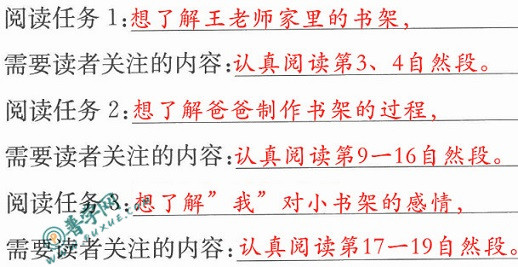 阅读任务1:想了解王老师家里的书架，
需要读者关注的内容:认真阅读第3、4自然段。
阅读任务2:想了解爸爸制作书架的过程，
需要读者关注的内容:认真阅读第9—16自然段。
阅读任务3:想了解”我”对小书架的感情，
需要读者关注的内容:认真阅读第17—19自然段。
普学网